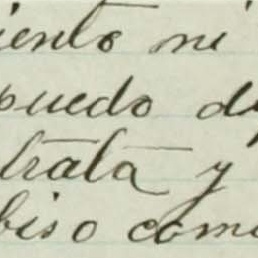 iento ni
puedo de
trata y
biso com